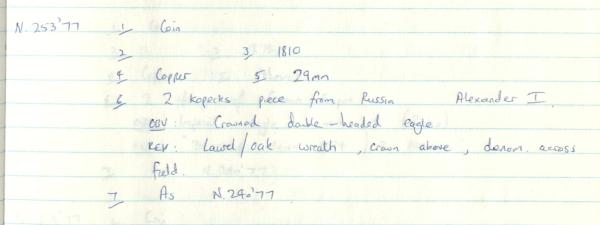 N.253'77 1 Coin
2 3 1810
4 Copper 5 29mm
6 2 kopecks piece from Russia Alexander I.
OBV: Crowned double-headed eagle.
REV: Laurel/oak wreath, crown above, denom. across
field.
7 As N.240'77